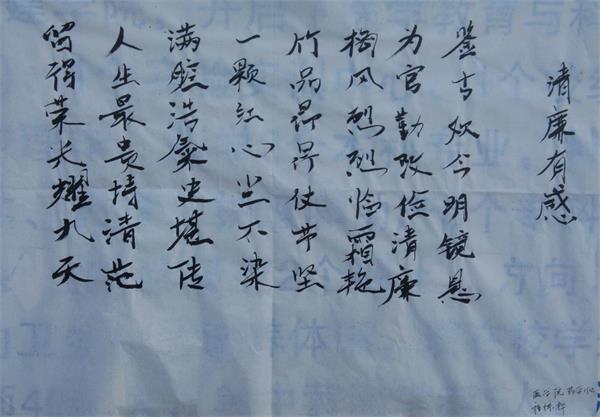 清廉有感
鉴古欣今明镜悬
为官勤政俭清廉
梅风烈烈临霜艳
竹品昂昂仗节坚
一颗红心尘不染
满腔浩氣史堪传
人生最贵持清范
留得荣光耀九天
医学院